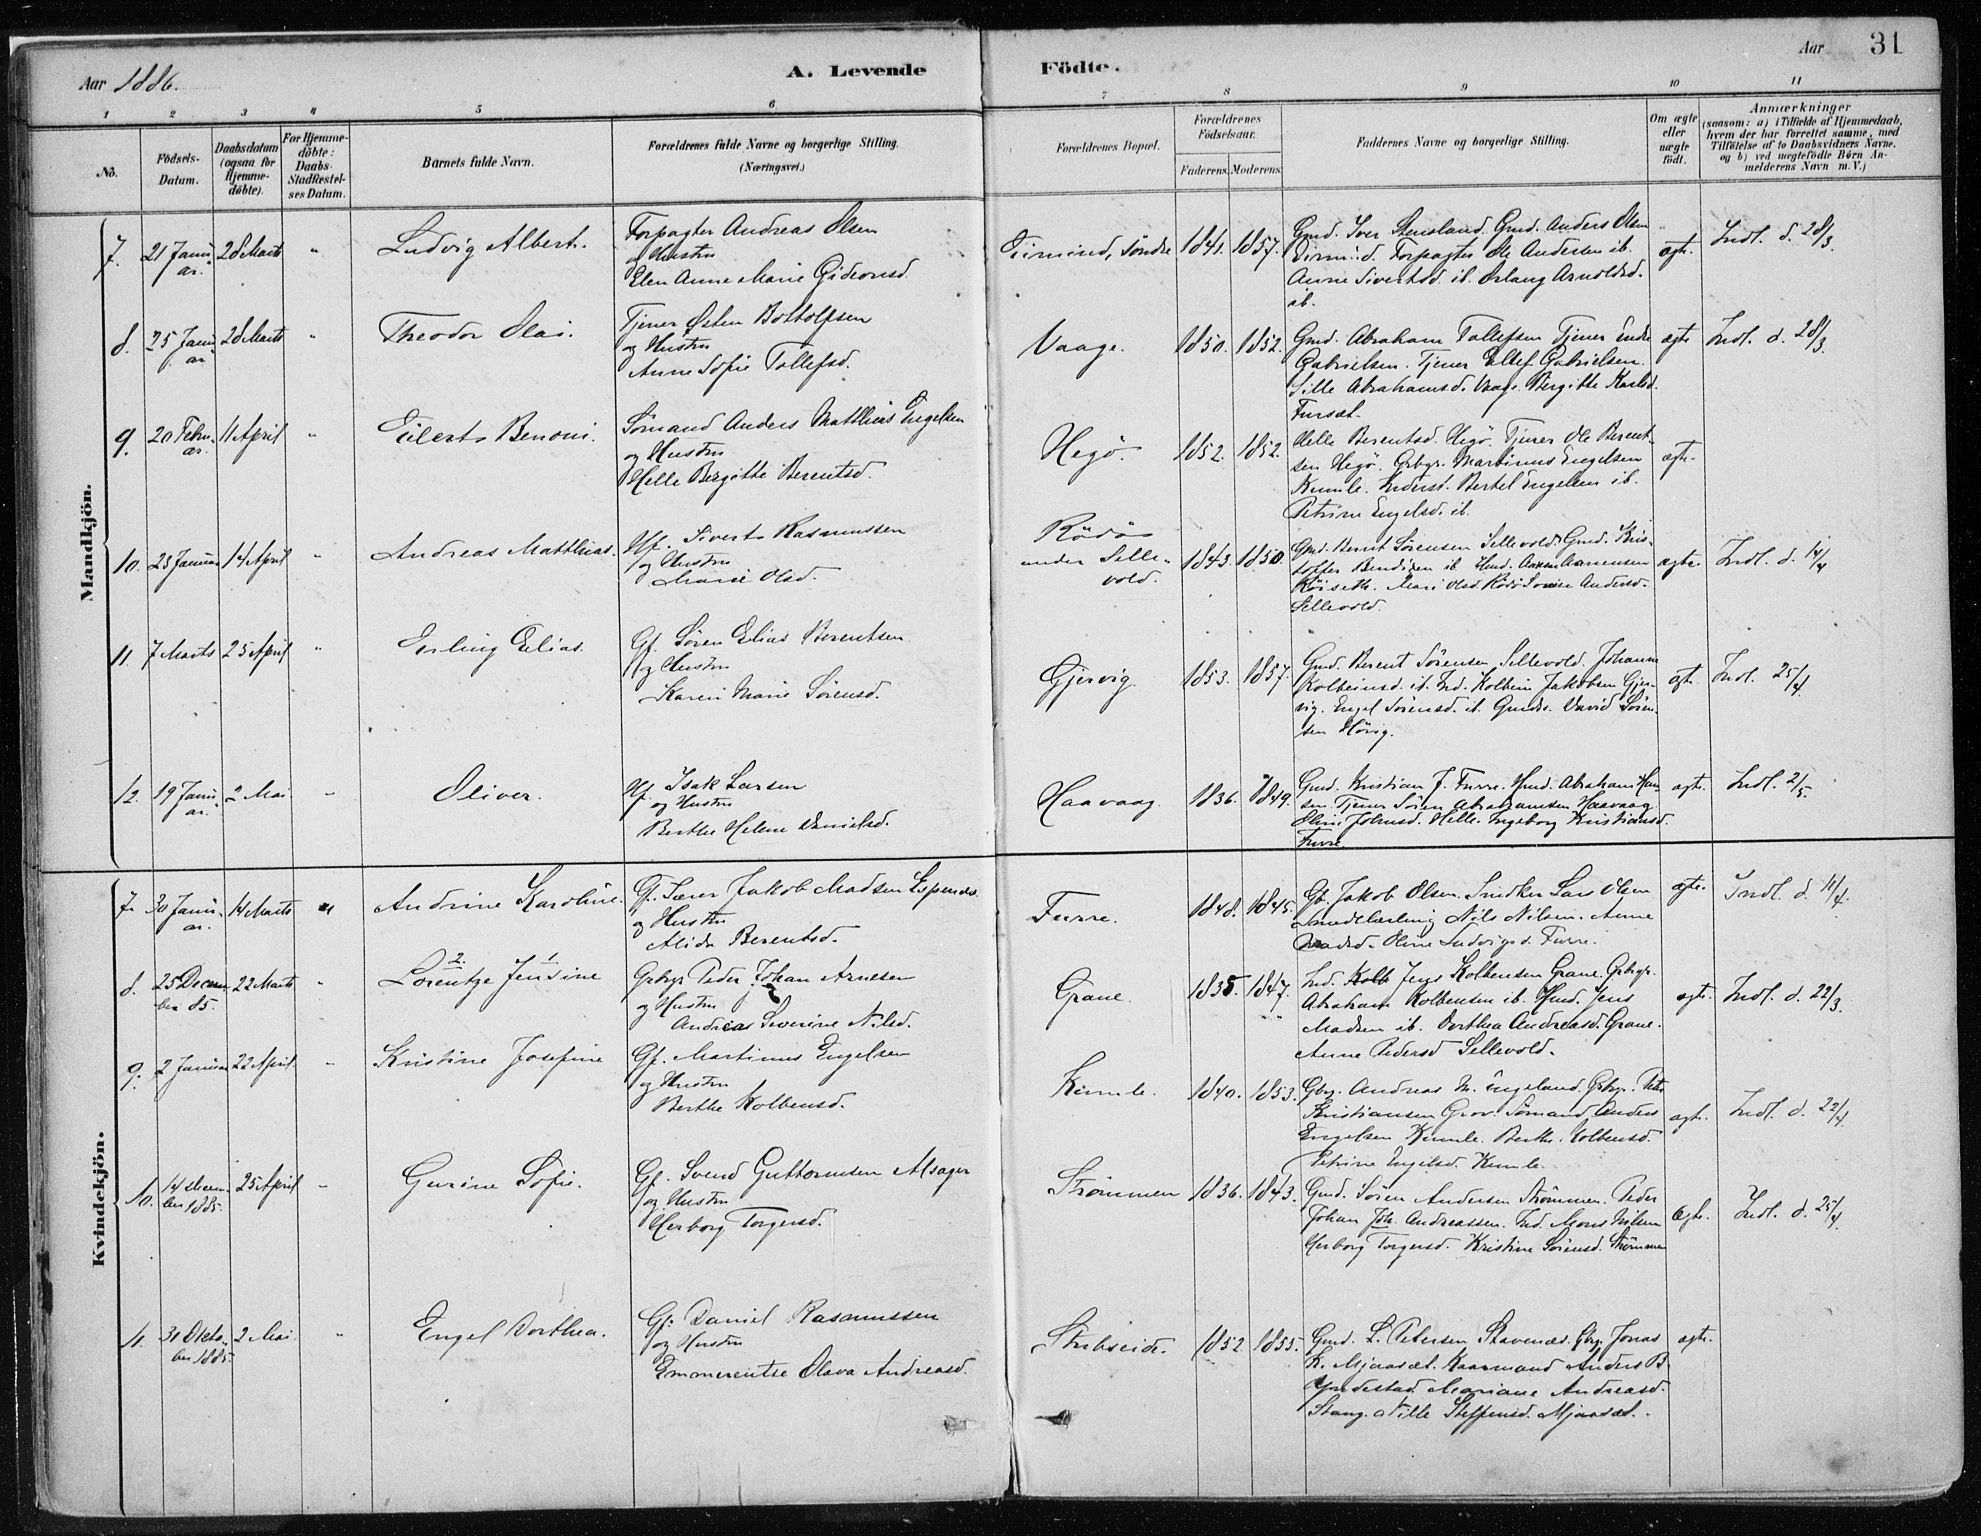 Aar 1886.
A. Levende
Födte.
Aar
31
1 2 3 4 5 6 7 8 9 10 11
No.
Födsels-
Datum.
Daabsdatum
(ogsaa for
Hjemme-
döbte).
For Hjemme-
döbte:
Daabs-
Stadfæstel-
ses Datum.
Barnets fulde Navn.
Forældrenes fulde Navne og borgerlige Stilling.
(Næringsvei.)
Forældrenes Bopæl.
Forældrenes
Födselsaar.
Faderens. Moderens.
Faddernes Navne og borgerlige Stilling.
Om ægte
eller
uægte
født.
Anmærkninger
(saasom: a) i Tilfælde af Hjemmedaab,
hvem der har forrettet samme, med
Tilföielse af to Daabsvidners Navne,
og b) ved uægtefödte Børn An-
melderens Navn m.V.)
Mandkjön.
7. 21 Janu-
ar. 28 Marts " Ludvig Albert. Forpagter Andreas Olsen
og Hustru
Elen Anne Marie Gideonsd.
Söndre 1841. 1857. Gmd. Iver Stensland. Gmd. Anders Olsen
Forpagter Ole Andersen ib.
Anne Sivertsd. ib. Erlang Arnoldsd.
ib.
ægte. Indl. d. 28/3.
8. 25 Janu-
ar 28 Marts " Theodor Olai. Tjener Østen Bottolfsen
og Hustru
Anne Sofie Tollefsd.
Vaage. 1850. 1852. Gmd. Abraham Tollefsen Tjener Endre
Gabrielsen. Tjener Ellef Gabrielsen
Sille Abrahamsd. Vaage Bergitte Karlsd.
Fursæt.
ægte Indl. d. 28/3.
9. 20 Febru-
ar. 11 April " Eilert Benoni. Sömand Anders Matthias Engelsen
og Hustru
Helle Bergitte Berentsd.
Hegö. 1852. 1852. Helle Berentsd. Hegö. Tjener Ole Berent-
sen Hegö. Grbgr. Martinus Engelsen
Kumle. Inderst. Bertel Engelsen ib.
Petrine Engelsd. ib.
ægte.
10. 23 Januar 14 April " Andreas Matthias. Hf. Sivert Rasmussen
og Hustru
Marie Olsd.
Rödö
under Selle-
vold. 1843. 1850. Gmd. Bernt Sörensen Sellevold. Gmd. Kris-
toffer Bendixen ib. Hmd. Aanen Aanensen
Mari Olsd Rödö Andersd.
Sellevold.
ægte. Indl. d. 14/4
11. 7 Marts 25 April " Erling Elias. Gf. Sören Elias Berentsen
og Hustru
Karen Marie Sörensd.
Gjervig. 1853. 1857. Gmd. Berent Sörensen Sellevold. Johanne
Kolbeinsd. ib. Ind. Kolbein Jakobsen Gjer-
vig. Engel Sörensd. ib. Gmds. David Sören-
sen Hövig.
ægte. Indl. 25/4.
12. 19 Janu-
ar. 2 Mai " Oliver. Hf. Isak Larsen
og Hustru
Berthe Helene Danielsd.
Haavaag. 1836. 1849. Gmd. Kristian J. Furre. Hmd. Abraham Han-
sen. Tjener Sören Abrahamsen Haavaag
Oline Johnsd. Helle. Ingeborg Kristiansd.
Furre.
ægte. Indl. 2/5.
Kvindekjön.
7. 30 Janu-
ar. 14 Marts " Andrine Karoline. Gf. Jakob Madsen
og Hustru
Alida Berentsd.
Furre. 1848. 1845. Gb. Jakob Olsen. Snedker Lars Olsen
Smedelærling Nils Nilsen. Anne
Madsd. Oline Ludvigsd. Furre.
ægte. Indl. d. 11/4.
8. 25 Decem-
ber 85. 22 Marts " 2. Lorentze 1 Jensine Grbgr. Peder Johan Arnesen
og Hustru
Andrea Severine Nilsd.
Grane. 1835 1847. Ind. Kolb Jens Kolbensen Grane. Grbgr.
Abraham Kolbensen ib. Hmd. Jens
Madsen ib. Dorthea Andreasd. Grane.
Anne Pedersd Sellevold.
ægte. Indl. d. 22/3.
9. 2 Januar 22 April. " Kristine Josefine Gf. Martinus Engelsen
og Hustru
Berthe Kolbensd.
Kumle. 1840. 1853. Gbg. Andreas M. Engeland. Grbgr. Peter
Kristiansen Grov. Sömand Anders
Engelsen Kumle. Berthe Kolbensd.
Petrine Engelsd. Kumle.
ægte. Indl. d. 22/4.
10. 14 Decem-
ber 1885. 25 April " Gurine Sofie. Gf. Svend Guttormsen Alsager
og Hustru
Herborg Torgersd.
Strömmen 1836. 1843. Gmd. Sören Andersen Strömmen. Peder
Johan Joh. Andreassen. Ind. Mons Nilsen
Herborg Torgersd. Kristine Sörensd. Strömmen
ægte. Indl. d. 25/4.
11. 31 Okto-
ber 1885. 2 Mai. " Engel Dorthea. Gf. Daniel Rasmussen
og Hustru
Emmerentse Olava Andreasd.
Stubseid. 1852 1855. Gmd. L. Petersen Stavenæs. Gbg. Jonas
K. Mjaasæt. Kaarmand Anders B.
Yndestad Mariane Andreasd.
Stang. Nille Steffensd. Mjaasæt.
ægte.